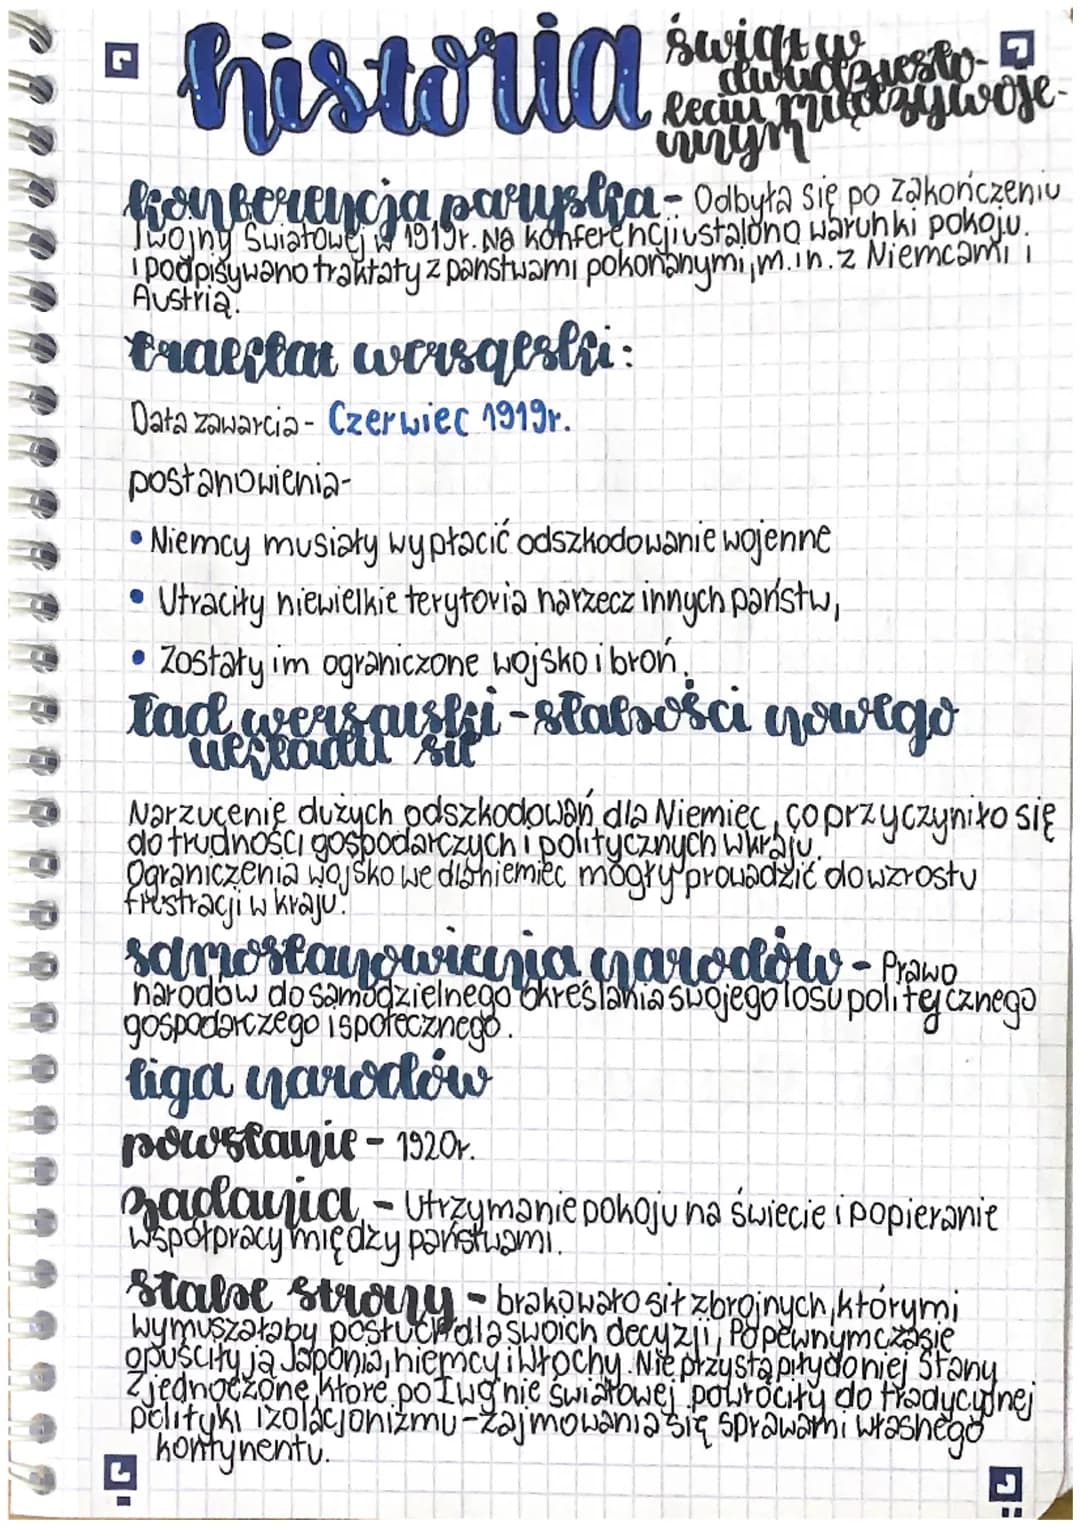 historia
świat w
dwudziesto-
leciu międzywoje-
nnym
konferencja paryska - Odbyła się po zakończeniu
I wojny Światowej w 1919r. Na konferencji ustalono warunki pokoju.
i podpisywano traktaty z państwami pokonanymi, m.in. z Niemcami i
Austrią.
traktat wersalski:
Data zawarcia - Czerwiec 1919r.
postanowienia-
• Niemcy musiały wypłacić odszkodowanie wojenne
• Utraciły niewielkie terytoria na rzecz innych państw,
• Zostały im ograniczone wojsko i broń.
Ład wersalski - słabości nowego
układu sił
Narzucenie dużych odszkodowań dla Niemiec, co przyczyniło się
do trudności gospodarczych i politycznych w kraju.
Ograniczenia wojskowe dla niemiec mogły prowadzić do wzrostu
frustracji w kraju.
samostanowienia narodów - Prawo
narodów do samodzielnego określania swojego losu politycznego
gospodarczego i społecznego.
liga narodów
powstanie - 1920r.
zadania - Utrzymanie pokoju na świecie i popieranie
współpracy między państwami.
słabe strony - brakowało sił zbrojnych, którymi
wymuszałaby posłuch dla swoich decyzji, Po pewnym czasie
opuściły ją Japonia, niemcy i Włochy. Nie przystąpiły do niej Stany
Zjednoczone, które po I wojnie światowej powróciły do tradycyjnej
polityki izolacjonizmu - zajmowania się sprawami własnego
kontynentu.